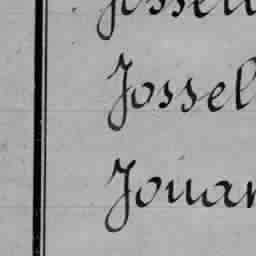 Jossel
Jouan